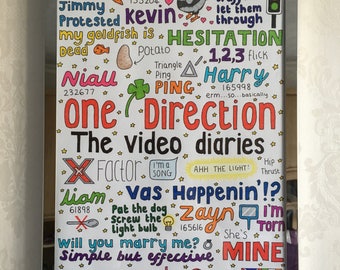 Jimmy
Protested
155204
Kevin
let them
through
my goldfish is
Dead
potato
HESITATION
1,2,3 flick
Niall
232677
Triangle
Ping
PING
Harry
165998
erm...so.. basically
One Direction
The video diaries
X Factor
I'm a
SONG
AHH THE LIGHT!
Hip
Thrust
Vas Happenin'!?
liam
61898
Pat the dog
Screw the
light bulb
Zayn
165616
I'm
Torn
She's
MINE
Will you marry me?
Simple but effective